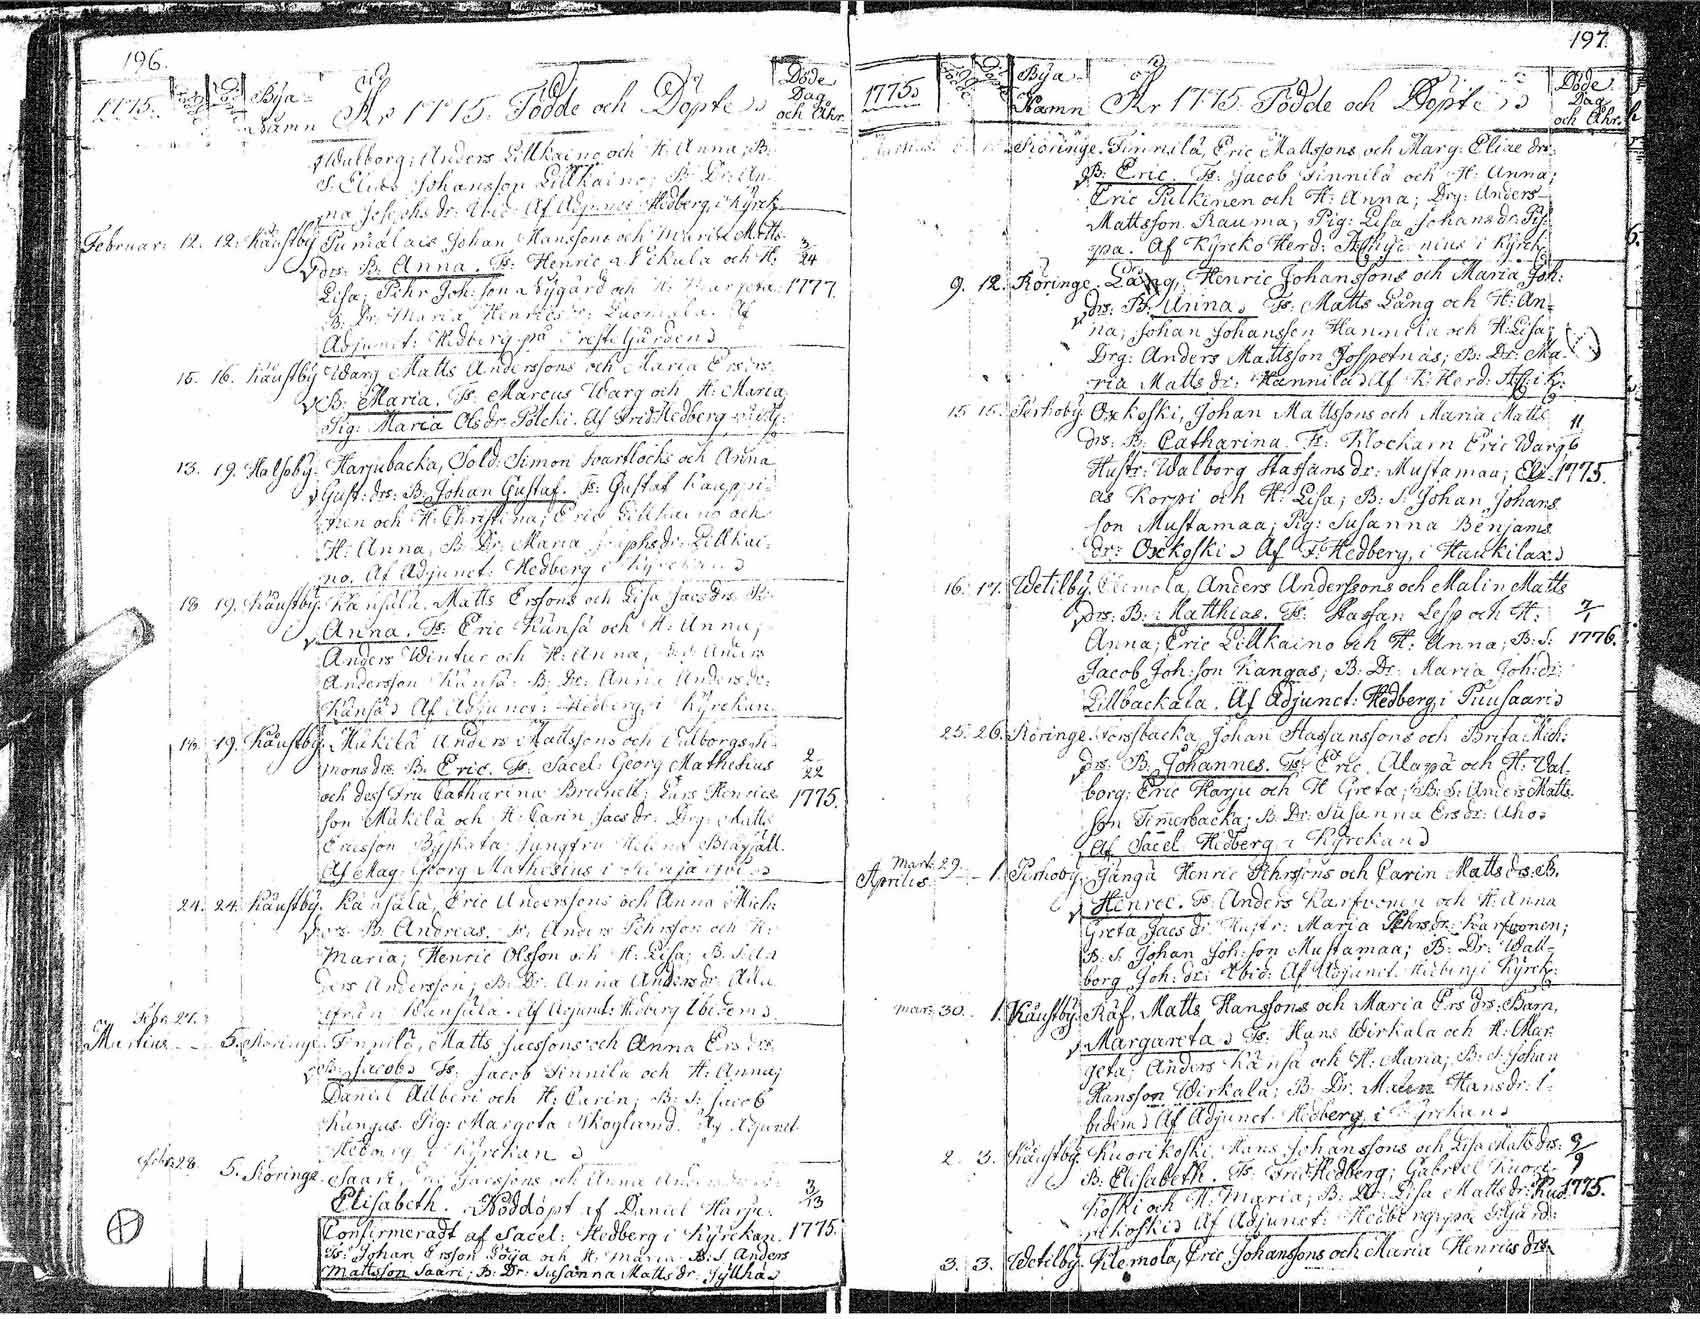 196.
1775.
Bÿa
Namn
År 1775. Födde och Döpte
Döde
Dag
och Åhr.
Walborg; Anders Lillkaino och H: Anna; B:
S: Elias Johansson Lillkaino; B: Dr: An
na Josephs dr: Ibid: Af Adjunct: Hedberg, i Kyrck:
Februar: 12. 12. Käustbÿ Pumalais Johan Hanssons och Maria Matts
drs: B: Anna. Fs: Henric Nikula och H: 3/24
Lisa; Pehr Joh:son Nÿgård och H: 1777.
B: Dr: Maria Henrics dr: Luomala. Af
Adjunct: Hedberg på PresteGården
15. 16. Käustbÿ Warg Matts Anderssons och Maria Ers drs
B: Maria. Fs: Marcus Warg och H: Maria
Pig: Maria Ols dr: Pölcki. Af Hedberg
13. 19. Halsobÿ. Harjubacka, Sold: Simon Svartlocks och Anna
Gust: drs: B: Johan Gustaf. Fs: Gustaf Kauppi
nen och H: Christina; Eric Lillkaino och
H: Anna, B: Dr: Maria Josephs dr: Lillkai
no. Af Adjunct: Hedberg i Kÿrckan
18. 19. Käustbÿ. Känsälä, Matts Erssons och Lisa Jacs drs B:
Anna. Fs: Eric Känsä och H: Anna;
Anders Wintur och H: Anna; B: S: Anders
Andersson Känsä: B: Dr: Anna Anders dr:
Känsä Af Adjunct: Hedberg, i Kÿrckan
18. 19. Käustbÿ. Mäkilä Anders Mattssons och Valborg Si
mons drs: B: Eric. Fs: Sacel: Georg Mathesius 2/22
och dess Fru Catharina; Lars Henrics 1775.
son Mäkilä och H: Carin Jacs dr: Drg: Matts
Ericsson Bÿskata; Jungfru Helena
Af Mag: Georg Mathesius i
24. 24. Käustbÿ. Känsälä, Eric Anderssons och Anna Mich:
drs B: Andreas. Fs: Anders Pehrsson och H:
Maria; Henric Olsson och H: Lisa; B: S: An
ders Andersson; B: Dr: Anna Anders dr: Alla
ifrån Känsälä. Af Adjunct: Hedberg Ibidem
Febr: 27.
Martius 5. Köringe. Finnilä, Matts Jacssons och Anna Ers drs
B: Jacob Fs: Jacob Finnilä och H: Anna;
Daniel Ailberi och H: Carin; B: S: Jacob
Kangas Pig: Margeta Skoglund. Af Adjunct
Hedberg i Kÿrckan
Febr: 28. 5. Köringe. Saari, Jacssons och Anna
Elisabeth. Nöddöpt af Daniel Harju. 3/13
Confirmeradt af Sacel: Hedberg i Kÿrckan. 1775.
Fs: Johan Ersson Pöija och H: Maria B: S: Anders
Mattsson Saari; B: Dr: Susanna Matts dr: Jÿllhä
197.
1775
Födde
Bÿa
Namn
År 1775. Födde och Döpte
Döde
Dag
och Åhr.
Köringe. Finnilä, Eric Mattssons och Marg: Eliæ drs:
B: Eric. Fs: Jacob Finnilä och H: Anna;
Eric Pulkinen och H: Anna; Drg: Anders
Mattsson Rauma; Pig: Lisa Johans dr: Pis
pa. Af Kÿrcko Herd: i Kÿrck:
9. 12. Köringe. Lång, Henric Johanssons och Maria Joh:
drs: B: Anna. Fs: Matts Lång och H: An
na; Johan Johansson Hannila och H: Lisa;
Drg: Anders Mattsson Jospetnäs; B: Dr: Ma
ria Matts dr: Hannila Af K: Herd:
15. 15. Perhobÿ. Oxkoski, Johan Mattssons och Maria Matts
drs: B: Catharina. Fs: Klockarn Eric Warg 11/6
Hustr: Walborg Staffans dr: Mustamaa; Eli 1775.
as Korpi och H: Lisa; B: S: Johan Johans
son Mustamaa; Pig: Susanna Benjams
dr: Oxkoski Af F: Hedberg, i Haukilax
16. 17. Wetilbÿ. Clemola, Anders Anderssons och Malin Matts
drs: B: Matthias. Fs: Staffan Lesp och H: 7/1
Anna; Eric Lillkaino och H: Anna; B: S: 1776.
Jacob Joh:son Kangas; B: Dr: Maria Joh: dr:
Lillbackala. Af Adjunct: Hedberg i Puusaari
25. 26. Köringe. Torsbacka, Johan Staffanssons och Brita Mich:
drs: B: Johannes. Fs: Eric Alapä och H: Val
borg; Eric Harju och H: Greta; B: S: Anders Matts
son Timerbacka; B: Dr: Susanna Ers dr: Aho
Af Sacel: Hedberg i Kÿrckan
Mart: 29.
Aprilis 1. Perhobÿ. Jänga Henric Pehrssons och Carin Matts drs: B.
Henric. Fs: Anders Karfvonen och H: Anna
Greta Jacs dr: Hustr: Maria Pehrs dr: Karfvonen;
B: S: Johan Joh:son Mustamaa; B: Dr: Wal
borg Joh: dr: Ibid: Af Adjunct: Hedberg i Kÿrck:
Mar: 30. 1. Käustbÿ. Räf, Matts Hanssons och Maria Ers drs: Barn,
Margareta Fs: Hans Wirkala och H: Mar
geta; Anders Känsä och H: Maria; B: S: Johan
Hansson Wirkala; B: Dr: Malin Hans dr: I
bidem Af Adjunct: Hedberg, i Kÿrckan
2. 3. Käustbÿ. Kuorikoski, Hans Johanssons och Lisa Matts drs: 9/9
B: Elisabeth. Fs: Hedberg; Gabriel Kuori
koski och H: Maria; B: Dr: Lisa Matts dr: Kuo 1775.
rikoski Af Adjunct: Hedberg, på
3. 3. Wetilbÿ. Klemola, Eric Johanssons och Maria Henrics drs